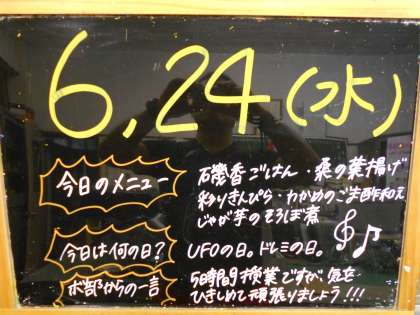 6,24(水)
今日のメニュー
磯香ごはん・桑の葉揚げ
彩りきんぴら・わかめのごま酢和え
じゃが芋のそぼろ煮
今日は何の日?
UFOの日。ドレミの日。
本部からの一言
5時間授業ですが気を
ひきしめて頑張りましょう!!!